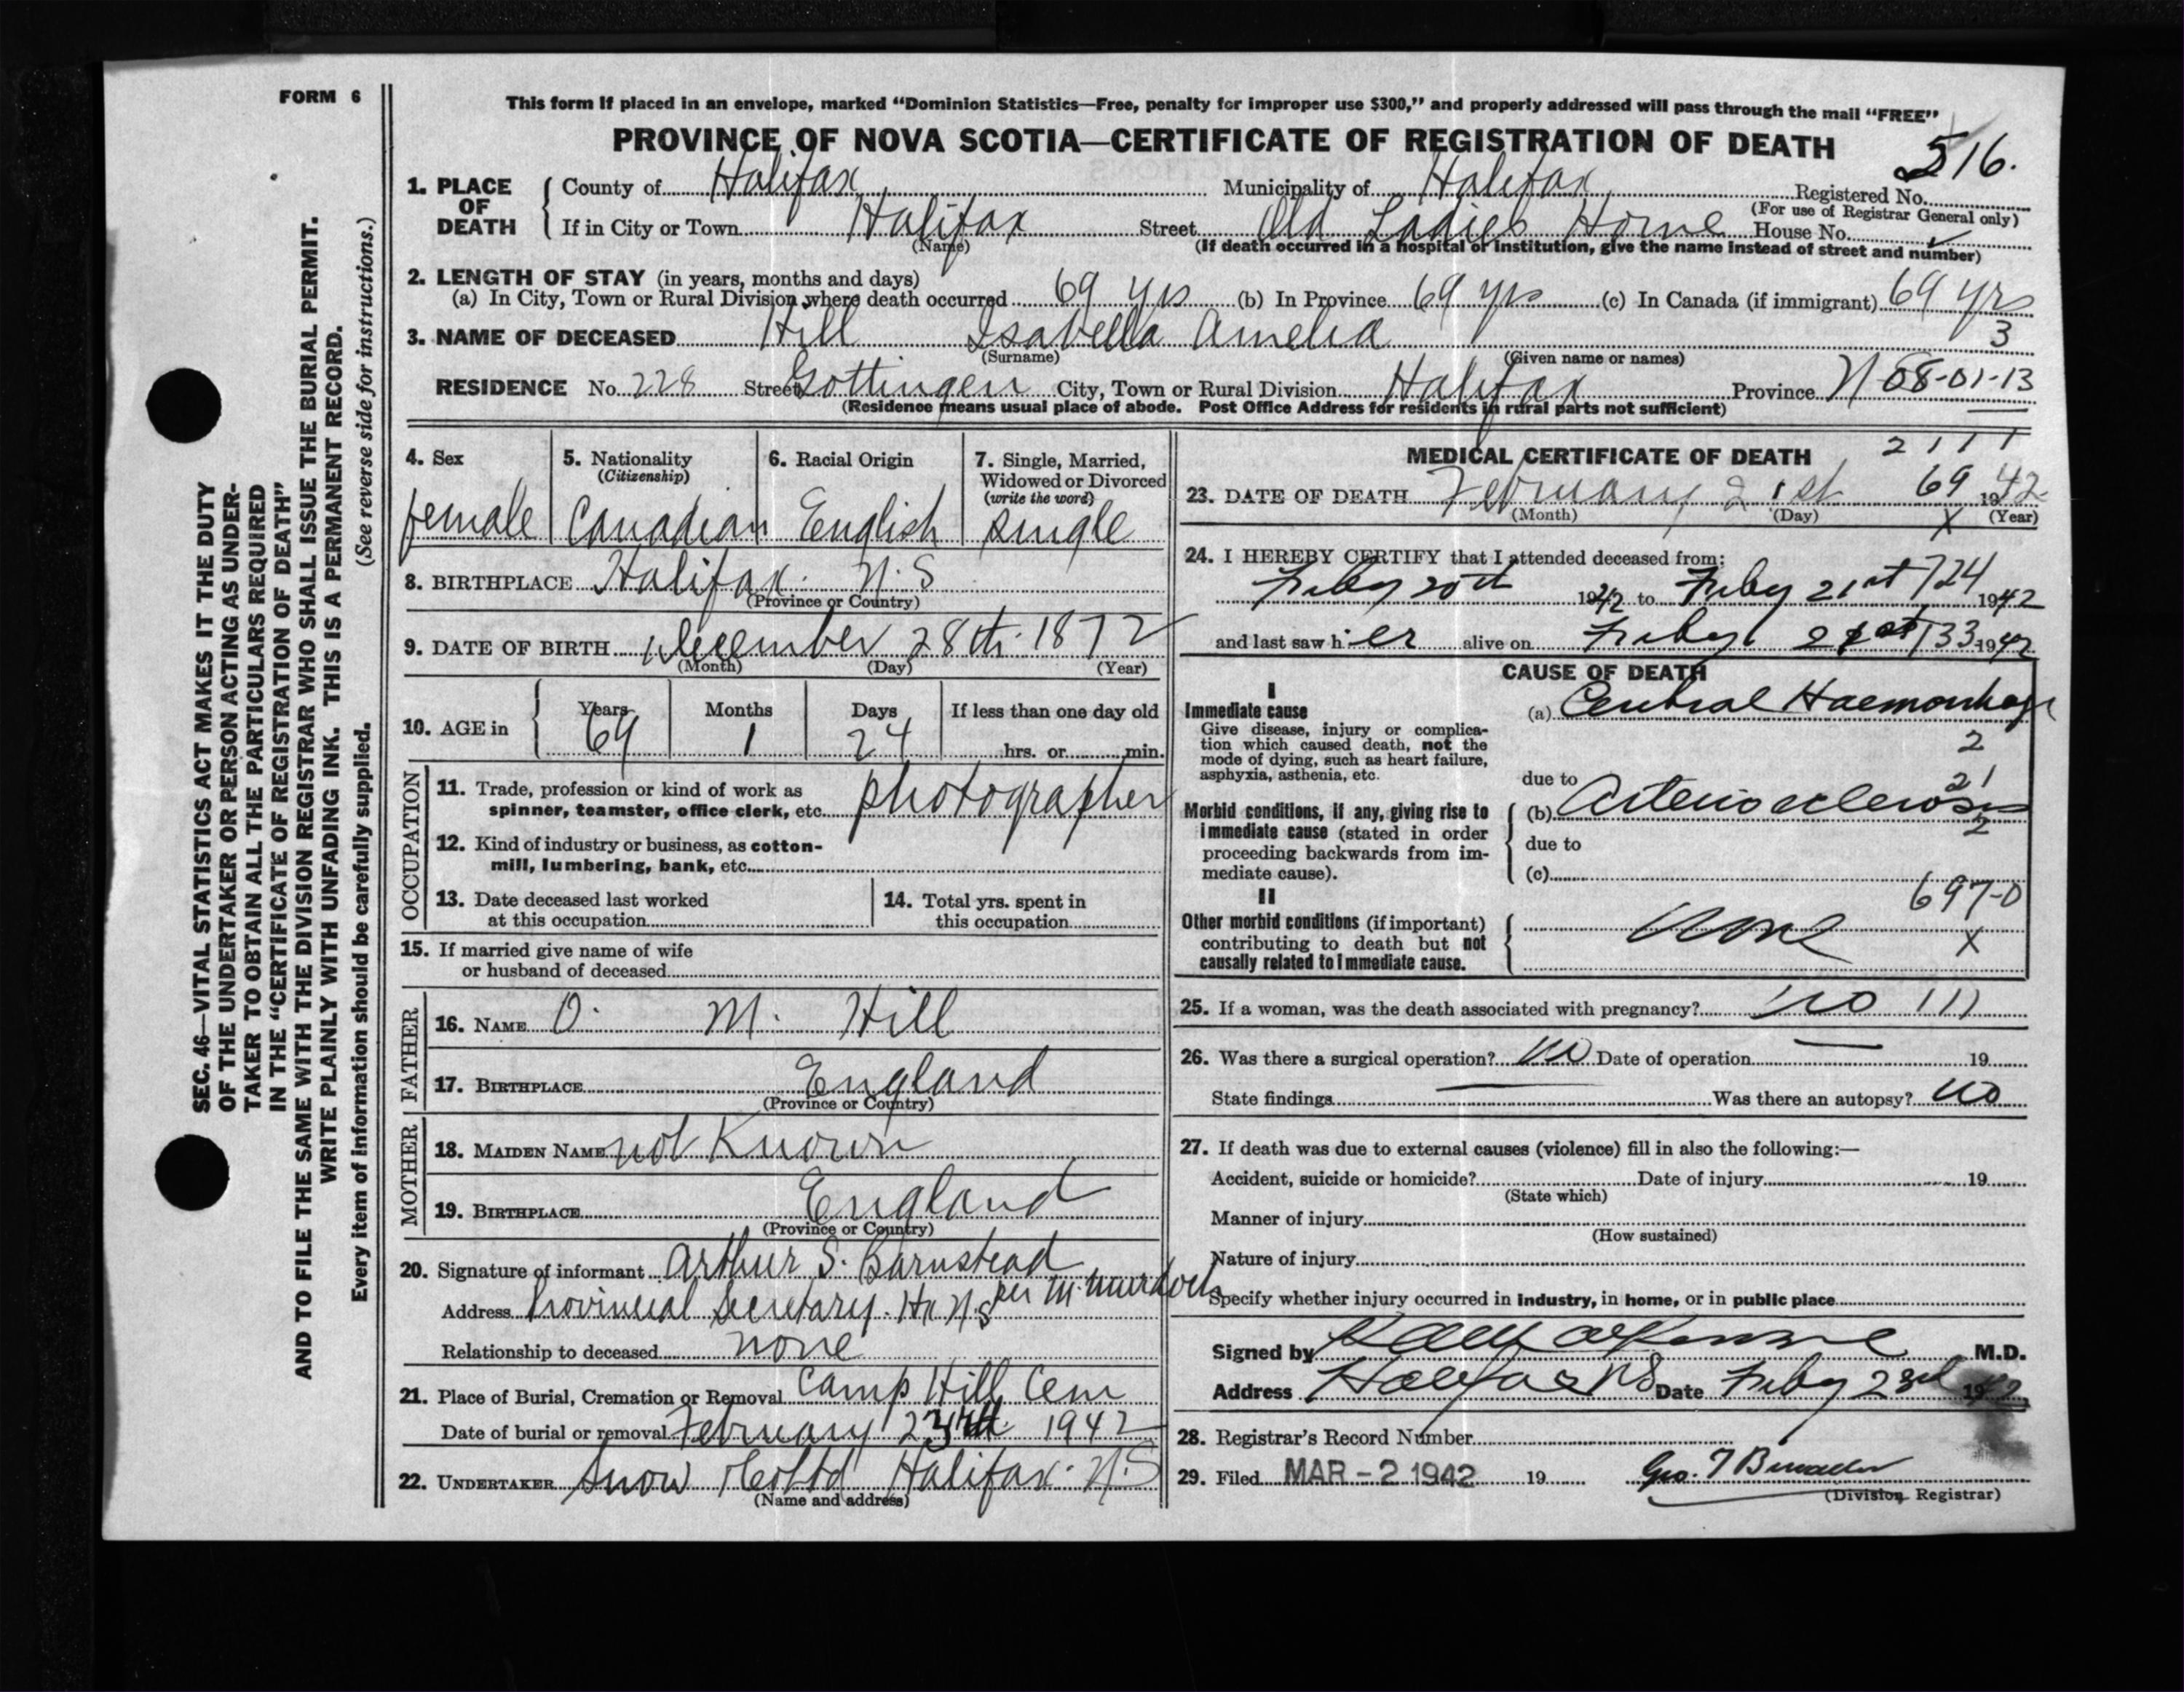 FORM 6
SEC. 46—VITAL STATISTICS ACT MAKES IT THE DUTY
OF THE UNDERTAKER OR PERSON ACTING AS UNDER-
TAKER TO OBTAIN ALL THE PARTICULARS REQUIRED
IN THE "CERTIFICATE OF REGISTRATION OF DEATH"
AND TO FILE THE SAME WITH THE DIVISION REGISTRAR WHO SHALL ISSUE THE BURIAL PERMIT.
WRITE PLAINLY WITH UNFADING INK. THIS IS A PERMANENT RECORD.
Every item of information should be carefully supplied. (See reverse side for instructions.)
This form if placed in an envelope, marked "Dominion Statistics—Free, penalty for improper use $300," and properly addressed will pass through the mail "FREE"
PROVINCE OF NOVA SCOTIA—CERTIFICATE OF REGISTRATION OF DEATH
516.
1. PLACE OF DEATH
County of Halifax Municipality of Halifax Registered No.
(For use of Registrar General only)
If in City or Town Halifax Street Old Ladies Home House No.
(Name) (If death occurred in a hospital or institution, give the name instead of street and number)
2. LENGTH OF STAY (in years, months and days)
(a) In City, Town or Rural Division where death occurred 69 yrs (b) In Province 69 yrs (c) In Canada (if immigrant) 69 yrs
3
3. NAME OF DECEASED Hill Isabella Amelia
(Surname) (Given name or names)
RESIDENCE No. 228 Street Gottingen City, Town or Rural Division Halifax Province N 08-01-13
(Residence means usual place of abode. Post Office Address for residents in rural parts not sufficient)
4. Sex 5. Nationality 6. Racial Origin 7. Single, Married,
(Citizenship) Widowed or Divorced
(write the word)
female Canadian English single
8. BIRTHPLACE Halifax. N.S
(Province or Country)
9. DATE OF BIRTH December 28th. 1872
(Month) (Day) (Year)
10. AGE in Years Months Days If less than one day old
69 1 24 hrs. or min.
OCCUPATION
11. Trade, profession or kind of work as
spinner, teamster, office clerk, etc. photographer
12. Kind of industry or business, as cotton-
mill, lumbering, bank, etc.
13. Date deceased last worked
at this occupation
14. Total yrs. spent in
this occupation
15. If married give name of wife
or husband of deceased
FATHER
16. NAME O. M. Hill
17. BIRTHPLACE England
(Province or Country)
MOTHER
18. MAIDEN NAME not Known
19. BIRTHPLACE England
(Province or Country)
20. Signature of informant Arthur S. Barnstead
per M. Murdoch
Address Provincial Secretary. Hx N.S
Relationship to deceased none
21. Place of Burial, Cremation or Removal Camp Hill Cem
Date of burial or removal February 23rd 1942
22. UNDERTAKER Snow & Co Ltd Halifax. N.S
(Name and address)
MEDICAL CERTIFICATE OF DEATH 2 1 1 1
23. DATE OF DEATH February 21st 69 1942
(Month) (Day) X (Year)
24. I HEREBY CERTIFY that I attended deceased from:
Feby 20th 1942 to Feby 21st 724 1942
and last saw her alive on Feby 21st 133 1942
CAUSE OF DEATH
I
Immediate cause
Give disease, injury or complica-
tion which caused death, not the
mode of dying, such as heart failure,
asphyxia, asthenia, etc.
(a) Cerebral Haemorrhage
2
due to 21
Morbid conditions, if any, giving rise to
immediate cause (stated in order
proceeding backwards from im-
mediate cause).
(b) Arteriosclerosis
2
due to
(c)
697-0
II
Other morbid conditions (if important)
contributing to death but not
causally related to immediate cause.
none
X
25. If a woman, was the death associated with pregnancy? no 111
26. Was there a surgical operation? no Date of operation — 19
State findings — Was there an autopsy? no
27. If death was due to external causes (violence) fill in also the following:—
Accident, suicide or homicide? Date of injury 19
(State which)
Manner of injury
(How sustained)
Nature of injury
Specify whether injury occurred in industry, in home, or in public place
Signed by M.D.
Address Halifax NS Date Feby 23rd 1942
28. Registrar's Record Number
29. Filed MAR - 2 1942 19 Geo. T
(Division Registrar)